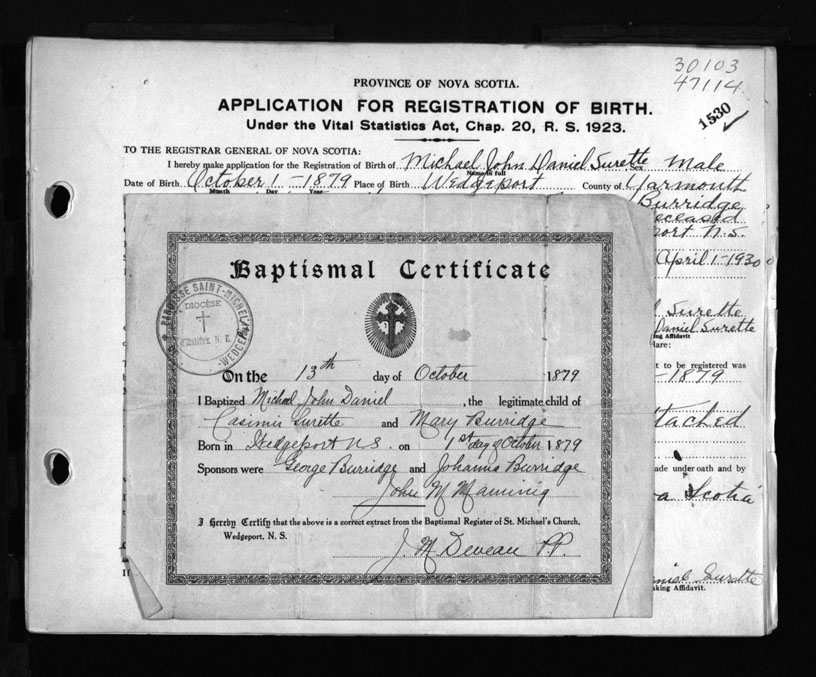 30103
47114
1530 ✓
PROVINCE OF NOVA SCOTIA.
APPLICATION FOR REGISTRATION OF BIRTH.
Under the Vital Statistics Act, Chap. 20, R. S. 1923.
TO THE REGISTRAR GENERAL OF NOVA SCOTIA:
I hereby make application for the Registration of Birth of Michael John Daniel Surette Sex Male
Name in full
Date of Birth October 1 - 1879 Place of Birth Wedgeport County of Yarmouth
Month Day Year
Burridge
eceased
port N.S.
April 1-1930
Surette
Daniel Surette
king Affidavit
lare:
t to be registered was
- 1879
tached
ade under oath and by
va Scotia
aniel Surette
aking Affidavit.
Baptismal Certificate
PAROISSE SAINT-MICHEL
DIOCÈSE
d'Halifax, N. E.
WEDGEPORT
On the 13th day of October 1879
I Baptized Michael John Daniel, the legitimate child of
Casimir Surette and Mary Burridge
Born in Wedgeport N.S. on 1st day of October 1879
Sponsors were George Burridge and Johanna Burridge
John M Manning
I Hereby Certify that the above is a correct extract from the Baptismal Register of St. Michael's Church,
Wedgeport, N. S.
J. N Deveau P.P.